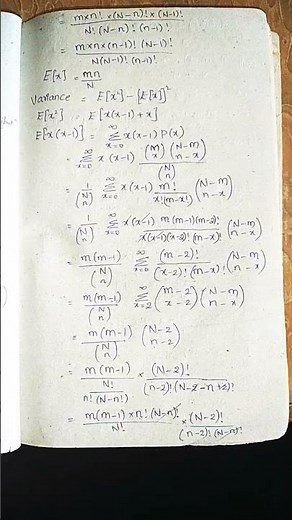 = m×n! × (N-n)! × (N-1)! / N! (N-n)! (n-1)!
= m×n×(n-1)! (N-1)! / N(N-1)! (n-1)!
E[x] = mn/N
Variance = E[x²] - [E[x]]²
E[x²] = E[x(x-1)+x]
E[x(x-1)] = ∞Σx=0 x(x-1) P(x)
= ∞Σx=0 x(x-1) (m x) (N-m n-x) / (N n)
= 1/(N n) ∞Σx=0 x(x-1) m!/x!(m-x)! (N-m n-x)
= 1/(N n) ∞Σx=0 x(x-1) m(m-1)(m-2)!/x(x-1)(x-2)! (m-x)! (N-m n-x)
= m(m-1)/(N n) ∞Σx=0 (m-2)!/(x-2)! (m-x)! (N-m n-x)
= m(m-1)/(N n) ∞Σx=2 (m-2 x-2) (N-m n-x)
= m(m-1)/(N n) (N-2 n-2)
= m(m-1) / N!/n!(N-n!) × (N-2)!/(n-2)! (N-2-n+2)!
= m(m-1) × n! (N-n)!/N! × (N-2)!/(n-2)! (N-n)!